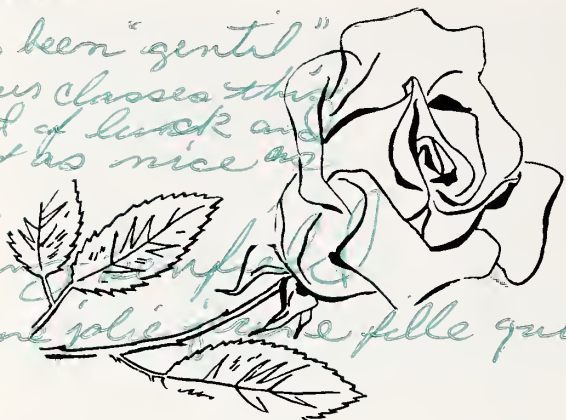 been "gentil"
classes this
of luck and
as nice as
jolie jeune fille qui